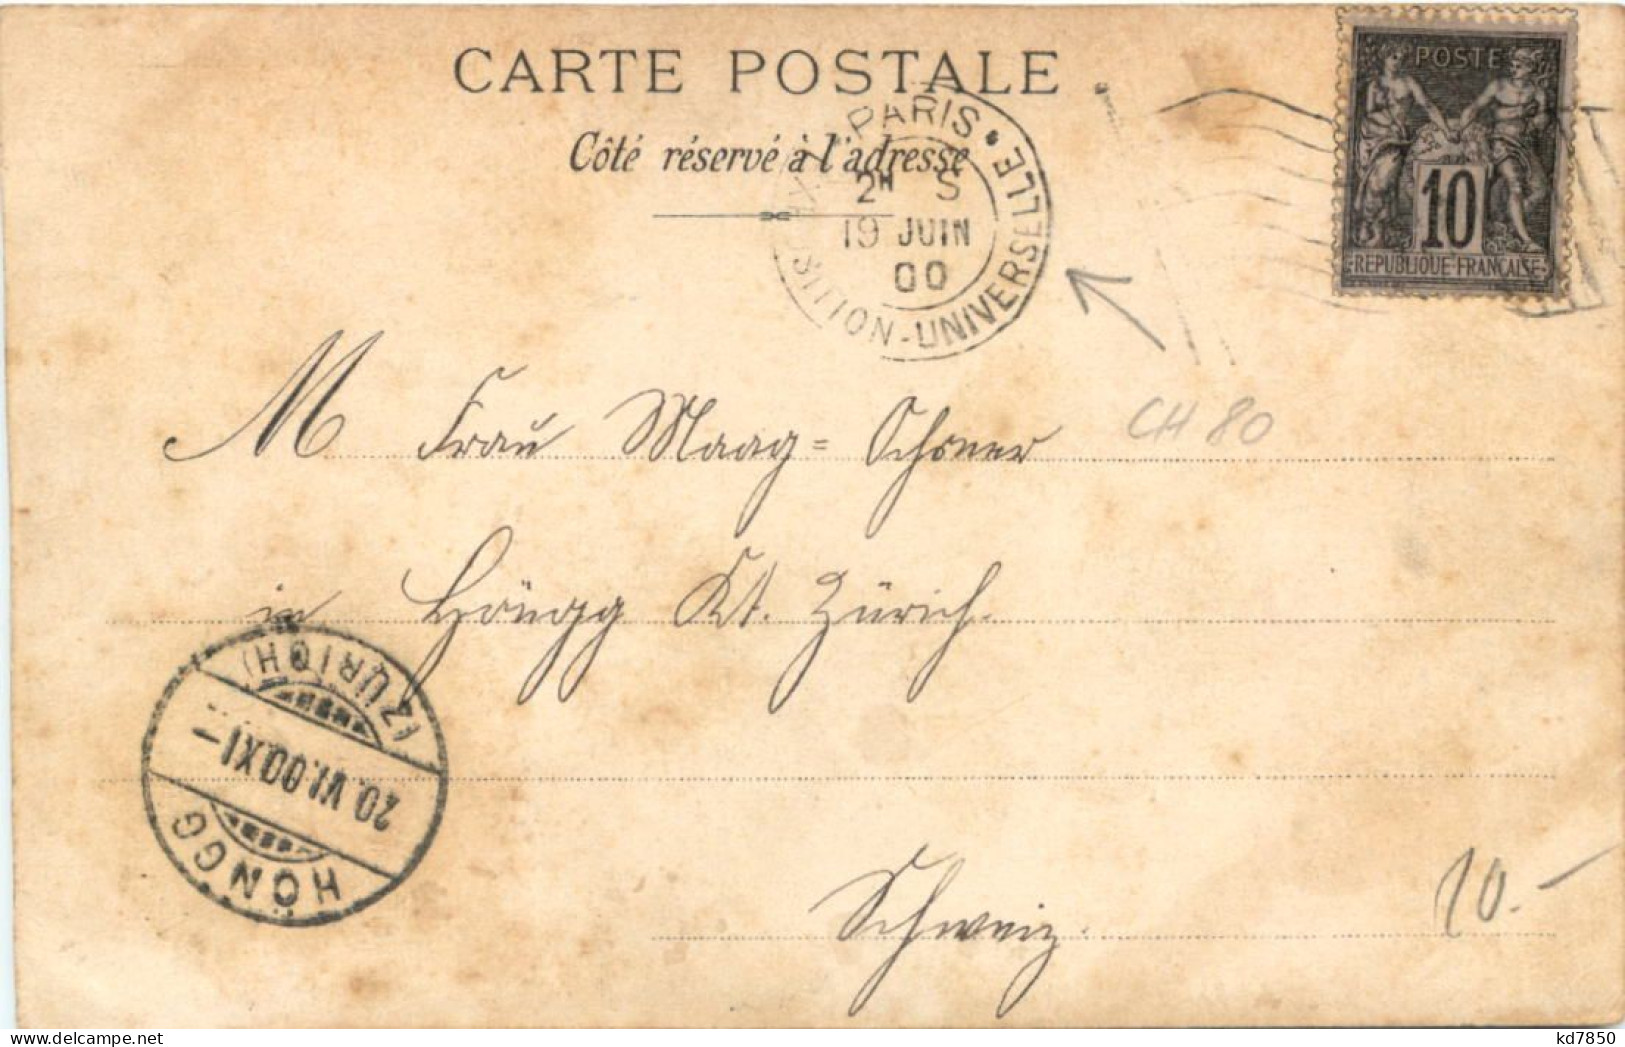 CARTE POSTALE
Côté réservé à l'adresse
PARIS • EXPOSITION-UNIVERSELLE
2H S
19 JUIN
00
POSTE
10
REPUBLIQUE FRANCAISE
CH 80
M Frau Maag=
in Höngg Kt. Zürich.
(ZÜRICH)
20.VI.00.XI-
HÖNGG
Schweiz.
10.-
kd7850